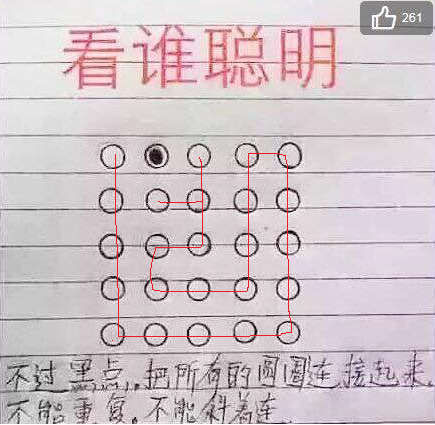 261
看谁聪明
不过黑点,把所有的圆圈连接起来,
不能重复,不能斜着连